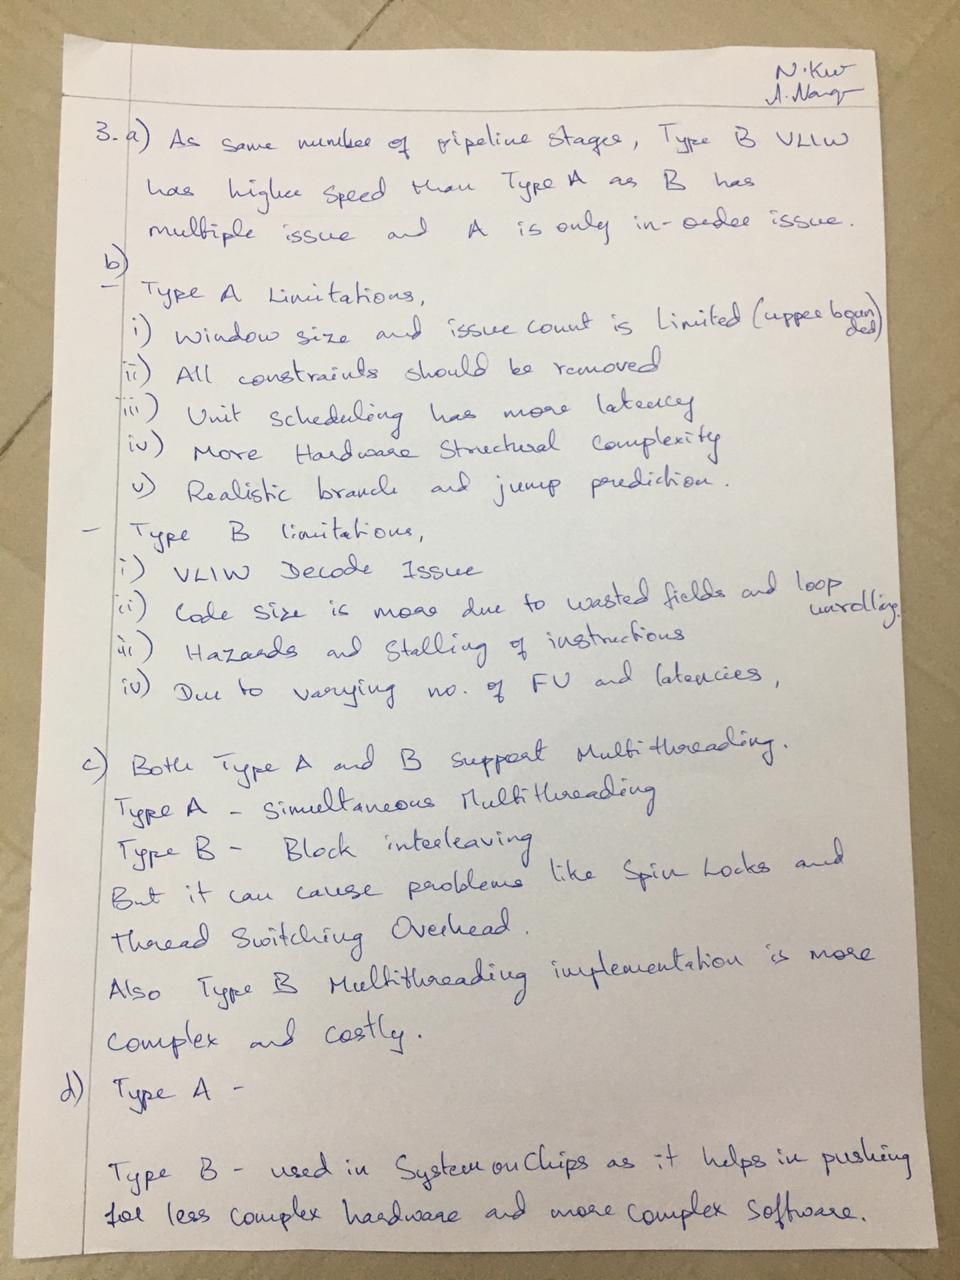 N.Kw
3. a) As same number of pipeline stages, Type B VLIW
has higher speed than Type A as B has
multiple issue and A is only in-order issue.
b)
- Type A Limitations,
i) Window size and issue count is limited (upper boun
ded)
ii) All constraints should be removed
iii) Unit scheduling has more latency
iv) More Hardware Structural Complexity
v) Realistic branch and jump prediction.
- Type B limitations,
i) VLIW Decode Issue
ii) Code size is more due to wasted fields and loop
unrolling.
iii) Hazards and Stalling of instructions
iv) Due to varying no. of FU and latencies,
c) Both Type A and B support Multithreading.
Type A - Simultaneous Multithreading
Type B - Block interleaving
But it can cause problems like Spin Locks and
thread Switching Overhead.
Also Type B Multithreading implementation is more
complex and costly.
d) Type A -
Type B - used in System on Chips as it helps in pushing
for less complex hardware and more complex Software.